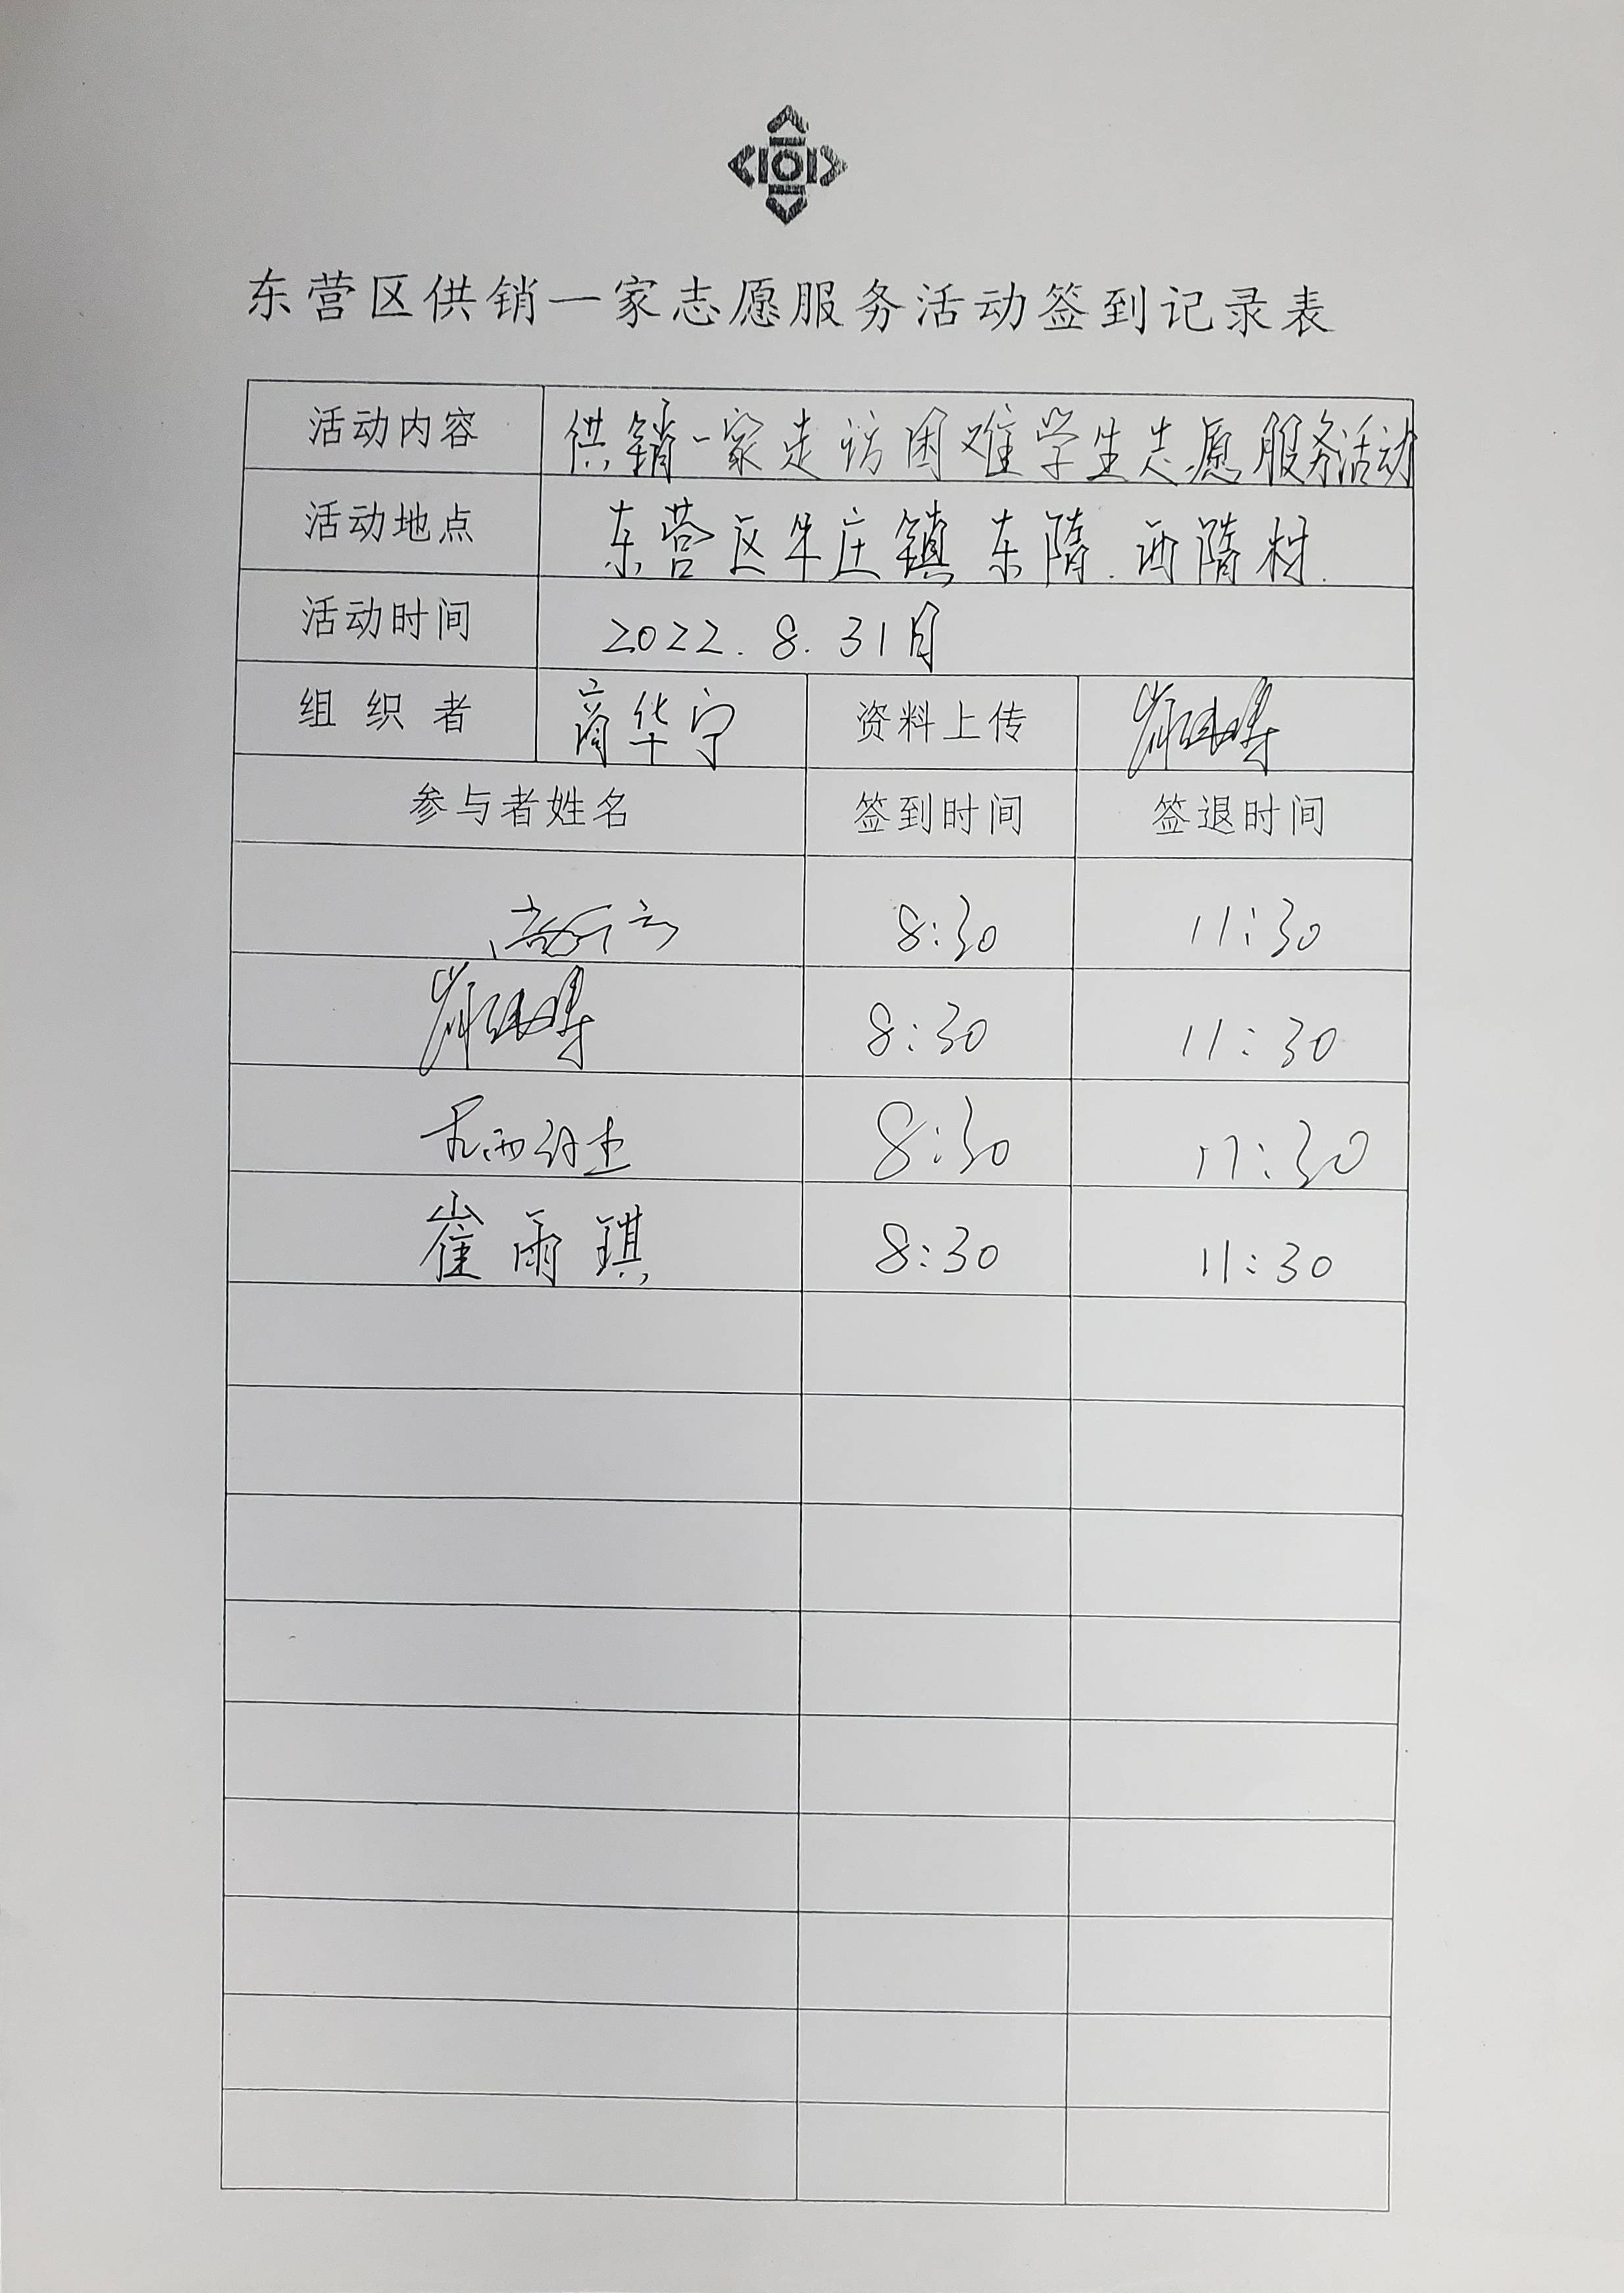 东营区供销一家志愿服务活动签到记录表
活动内容 供销一家走访困难学生志愿服务活动
活动地点 东营区牛庄镇东隋.西隋村.
活动时间 2022.8.31日
组织者 商华宁 资料上传
参与者姓名 签到时间 签退时间
8:30 11:30
8:30 11:30
8:30 11:30
崔雨琪 8:30 11:30